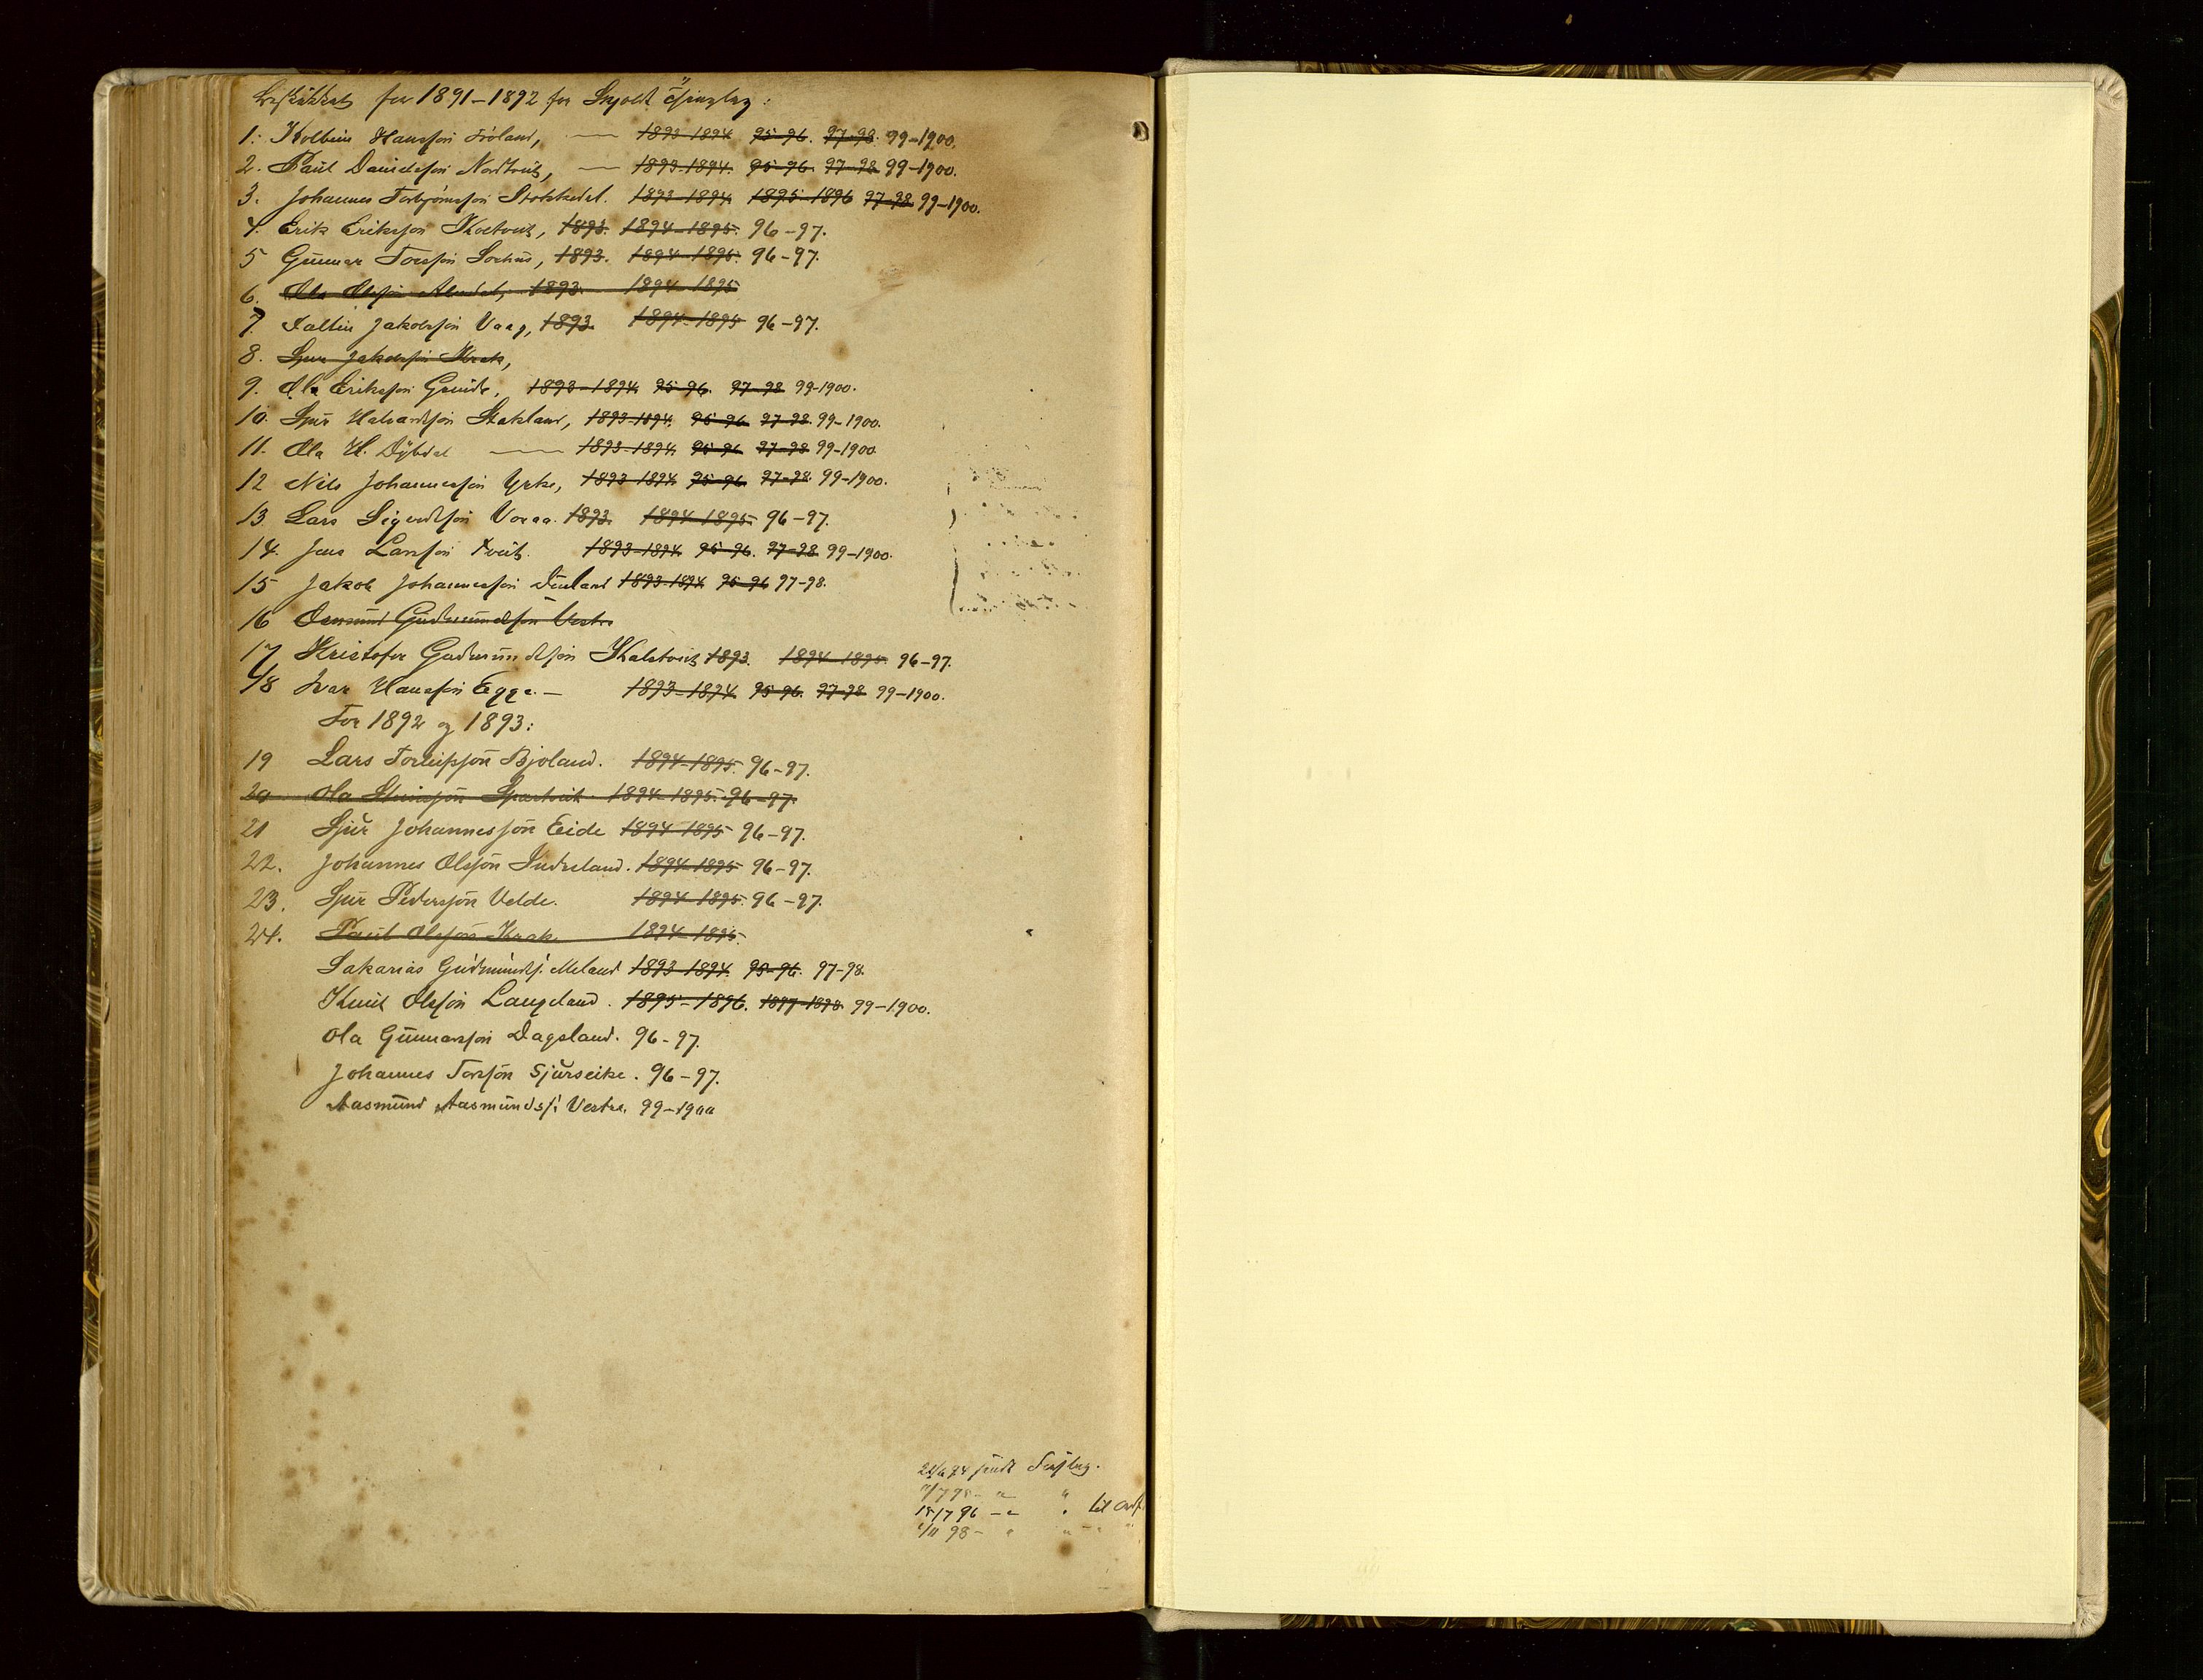 for 1891-1892 for Skjold Tinglag:
1. Kolbein Hansson Frøland, — 1893-1894 95-96. 97-98. 99-1900.
2. Paul Davidsson Nordtveit, — 1893-1894. 95-96. 97-98 99-1900.
3. Johannes Torbjørnsson Stokkedal. 1893-1894 1895-1896 97-98 99-1900.
4. Erik Eriksson 1893. 1894-1895. 96-97.
5 Gunnar Torsson 1893. 1894-1895. 96-97.
6. Ola Olsson 1893. 1894-1895
7. Faltin Jakobsson Vaag, 1893. 1894-1895 96-97.
8. Sjur Jakobsson Krak,
9. Ola Eriksson Grinde, 1893-1894. 95-96. 97-98 99-1900.
10. Sjur Halvardsson Stakland, 1893-1894. 95-96. 97-98. 99-1900.
11. Ola H. Dybdal — 1893-1894. 95-96 97-98 99-1900
12 Nils Johannesson Yrke, 1893-1894. 95-96. 97-98. 99-1900.
13. Lars Sigurdsson Voraa. 1893. 1894-1895. 96-97.
14. Jens Larsson Tveit. 1893-1894. 95-96. 97-98 99-1900.
15 Jakob Johannesson 1893-1894 95-96 97-98.
16 Gudmundsson Vestre
17 Kristofer Gudmundsson Kalstveit 1893. 1894-1895. 96-97.
18 Ivar Hansson Egge. — 1893-1894. 95-96. 97-98 99-1900.
For 1892 og 1893:
19 Lars Torleifsson Bjoland. 1894-1895. 96-97.
20 Ola 1894-1895. 96-97.
21 Sjur Johannesson Eide 1894-1895 96-97.
22. Johannes Olsson Indreland. 1894-1895 96-97.
23. Sjur Pedersson Velde. 1894-1895. 96-97.
24. Paul Olsson Krak. 1894-1895.
Sakarias Gudmunds. Meland 1893-1894. 95-96. 97-98.
Knut Olsson Langeland. 1895-1896. 1897-1898. 99-1900.
Ola Gunnarsson Dagsland. 96-97.
Johannes Torsson Sjurseike. 96-97.
Aasmund Aasmundss. Vestre. 99-1900
94 sendt Forslag.
15/7 96 - " " til
98 - " "